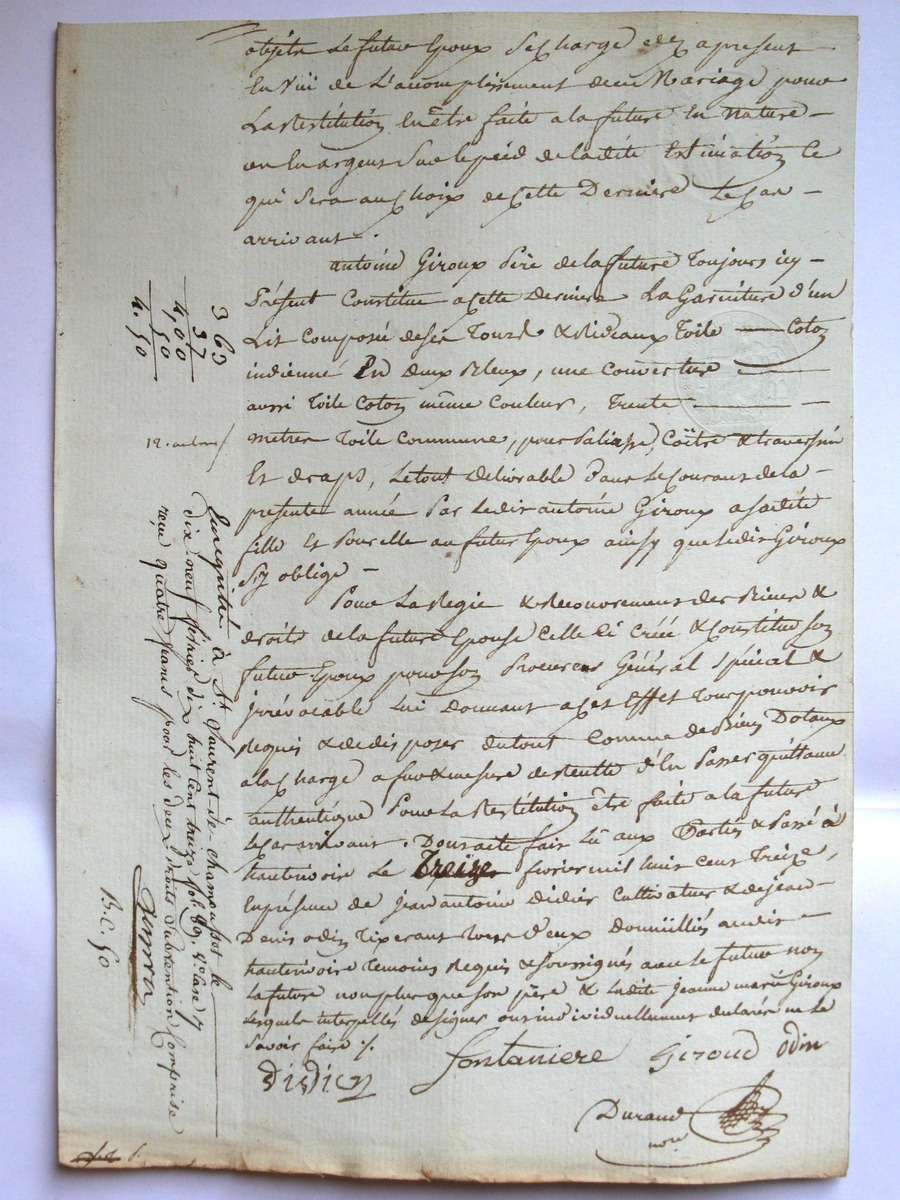 objets Le futur Epoux Se charge dez apresent
En Vüe de L'accomplissement dece Mariage pour
La Restitution En être faite a la future En Nature
ou En argent Sur le pied de la dite Estimation Ce
qui Sera au choix de Cette Derniere Le Cas
arrivant.
antoine Giroux Père de la future Toujours icy
Présent Constitue a Cette Derniere La Garniture d'un
Lit Composée de Toile Coton
indienne En Deux Bleux, une Couverture
aussi Toile Coton même Couleur, Trente
metres Toile Commune, pour Paliasse, Coïtre & traversin
Et draps, Le tout Delivrable Dans Le Courant de la
presente année Par Ledit antoine Giroux a sadite
fille Et Pour elle au futur Epoux ainsy que Ledit Giroux
Sy oblige
Pour La Regie & Recouvrement des Biens &
droits de la future Epouse Celle Ci Créé & Constitue Son
futur Epoux pour Son Procureur Général Spécial &
Irrévocable Lui Donnant a Cet Effet Tous pouvoir
Requis & de disposer du tout Comme de Biens Dotaux
a la Charge a fur & mesure de Recette d'En Passer quittance
authentique Pour La Restitution être faite a la future
Le Cas arrivant. Dont acte fait Lû aux Parties & Passé à
hauterivoire Le Treize fevrier mil huit Cent Treize,
En présence de jean antoine Didier Cultivateur & de jean
Denis odin Tixerant Tous Deux Domiciliés audit
hauterivoire Temoins Requis & Soussignés avec Le future non
La future non plus que Son père & Ladite jeanne marie Giroux
Lesquels interpellés de signer ont individuellement declarés ne Le
Savoir faire ./.
Didier fontaniere Giroud Odin
Durand
nore
363
37
4,00
50
4.50
Enregistré à St Laurent de chamousset le
dix neuf février dix huit cent treize fol. 89. Vo Case 7
reçu quatre francs pour les deux droits Subvention Comprise
B.C. 50